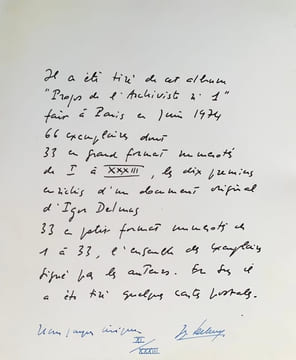 Il a été tiré de cet album
"Propos de l'Archiviste n° 1"
fait à Paris en Juin 1974
66 exemplaires dont
33 en grand format numérotés
de I à XXXIII, les dix premiers
enrichis d'un document original
d'Igor Delmas
33 en petit format numérotés de
1 à 33, l'ensemble des exemplaires
signé par les auteurs. En sus il
a été tiré quelques cartes postales.
XI
/XXXIII